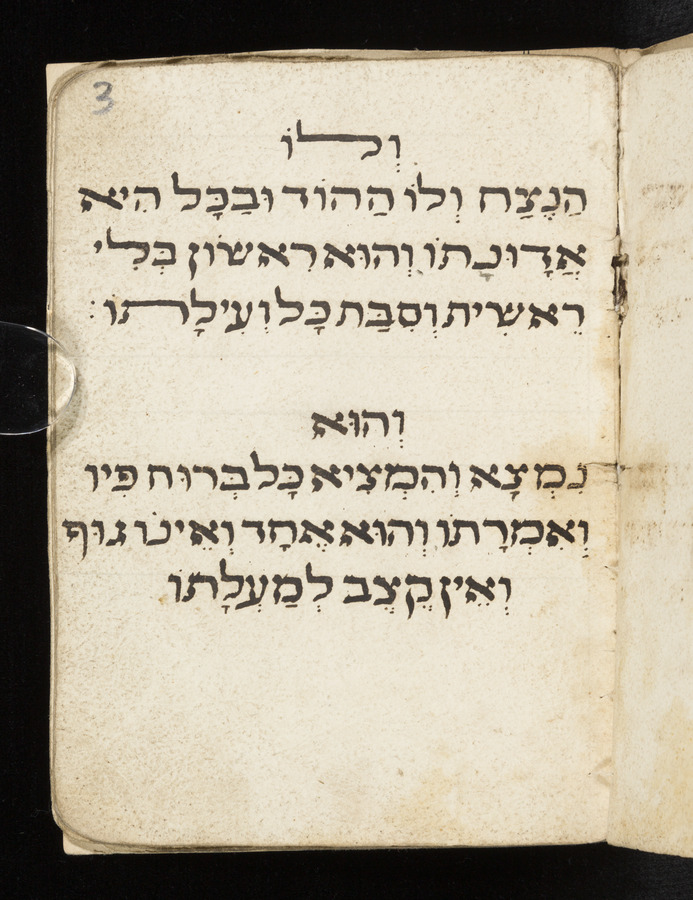 3
וְלוֹ
הַנֶצַח וְלוֹ הַהוֹד וּבַכָּל הִיא
אֲדָוּנָתוֹ וְהוּא רִאשׁוֹן בְּלִי
רֵאשִׁית וְסִבַּת כָּל וְעִילָתוֹ:
וְהוּא
נִמְצָא וְהִמְצִיא כָּל בְּרוּחַ פִּיו
וְאִמְרָתוֹ וְהוּא אֶחָד וְאֵינוֹ גוּף
וְאֵין קֶצֶב לְמַעְלָתוֹ